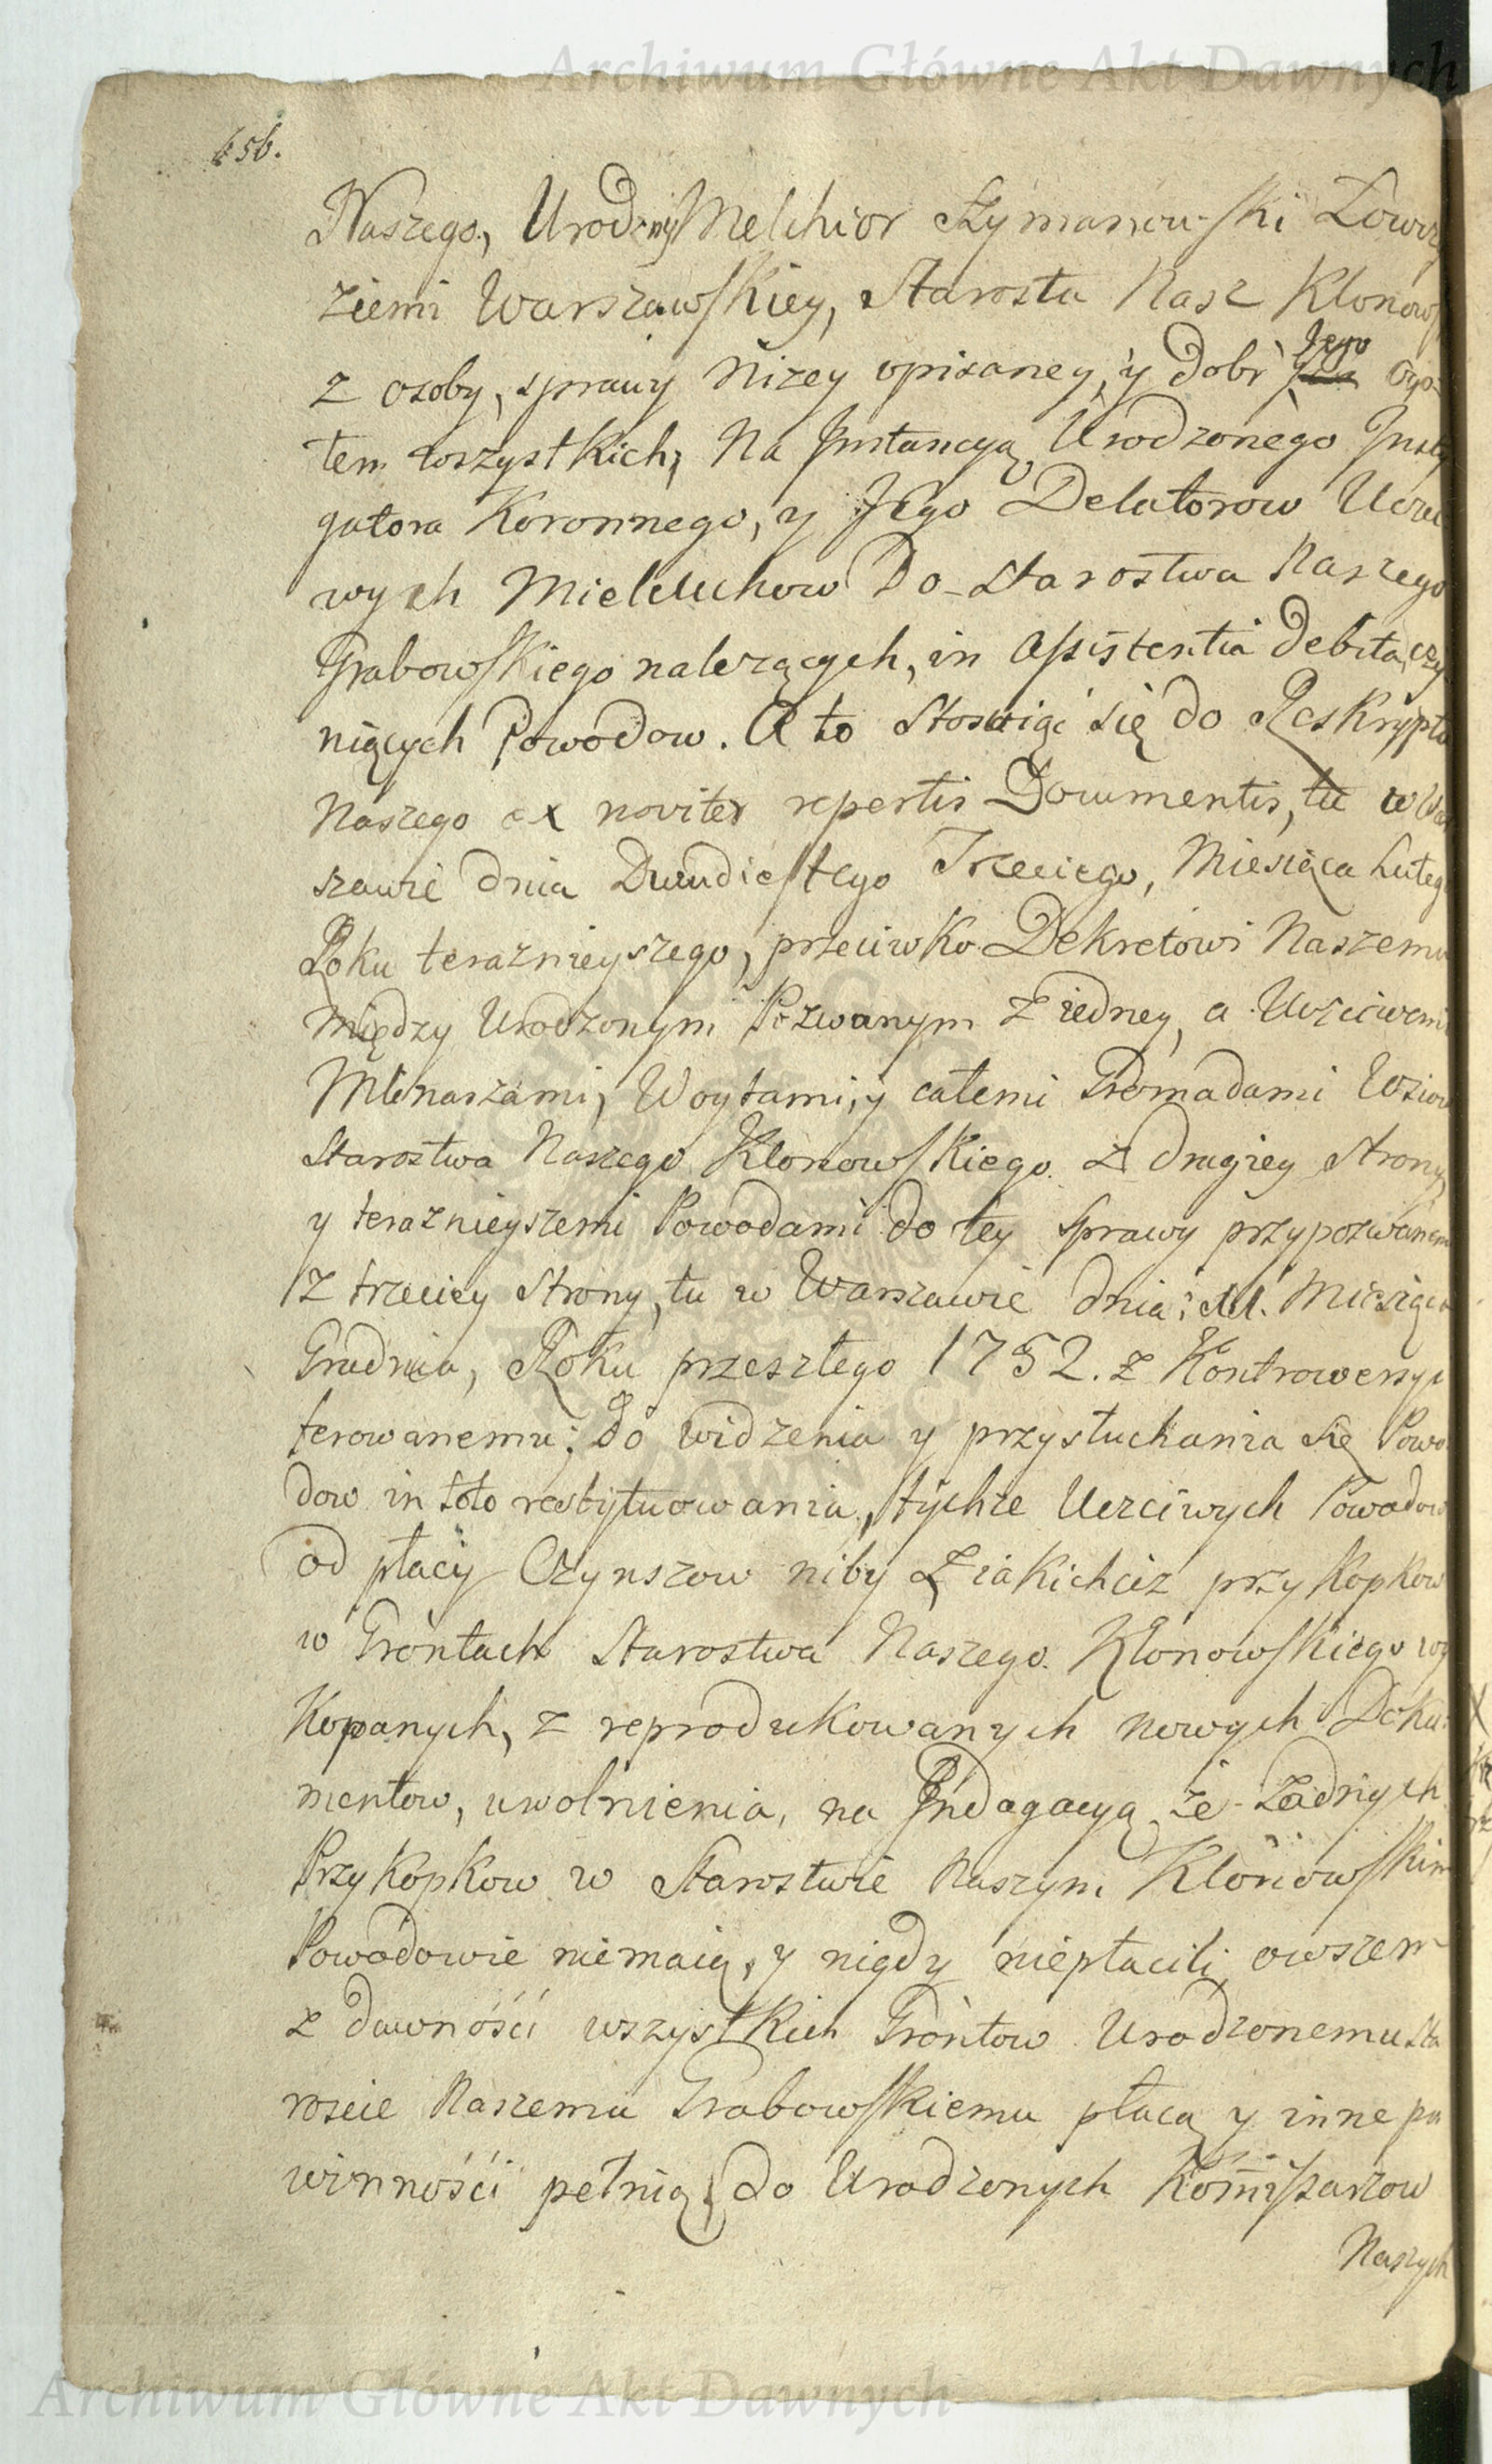 Archiwum Główne Akt Dawnych
456.
Naszego, Urodzony Melchior Szymanowski Łowczy
Ziemi Warszawskiey, Starosta Nasz Klonows
z osoby, sprawy niżey opisaney, y dobr Jego Ogo-
tem wszystkich, Na Jnstancyą Urodzonego Jnsty
gatora Koronnego, y Jego Delatorow Uczci
wych Mielcuchow Do Starostwa Naszego
Grabowskiego należących, in Assistentia debita czy
niących Powodow. A to stosuiąc się do Reskryptu
Naszego ex noviter repertis Documentis, tu w War
szawie dnia Dwudziestego Trzeciego, Miesiąca Lutego
Roku teraznieyszego, przeciwko Dekretowi Naszemu
między Urodzonym Pozwanym z iedney, a Uczciwemi
Młynarzami, Woytami, y całemi Gromadami Wsiow
Starostwa Naszego Klonowskiego z drugiey strony
y teraznieyszemi Powodami do tey sprawy przypozwanemi
z trzeciey strony, tu w Warszawie dnia Miesiąca
Grudnia, Roku przeszłego 1752. z Kontrowersyi
ferowanemu; do widzenia y przysłuchania się Powo
dow in toto restytuowania, tychże Uczciwych Powodow
od płacy Czynszow niby z iakichciz przykopkow
w Grontach Starostwa Naszego Klonowskiego wy
kopanych, z reprodukowanych nowych Doku-
mentow, uwolnienia, na Jndagacyą że żadnych
Przykopkow w Starostwie Naszym Klonowskim
Powodowie niemaią, y nigdy niepłacili owszem
z dawności wszystkich Grontow Urodzonemu Sta
roscie Naszemu Grabowskiemu płacą y inne po
winności pełnią, do Urodzonych Kommissarzow
Naszych
Archiwum Główne Akt Dawnych